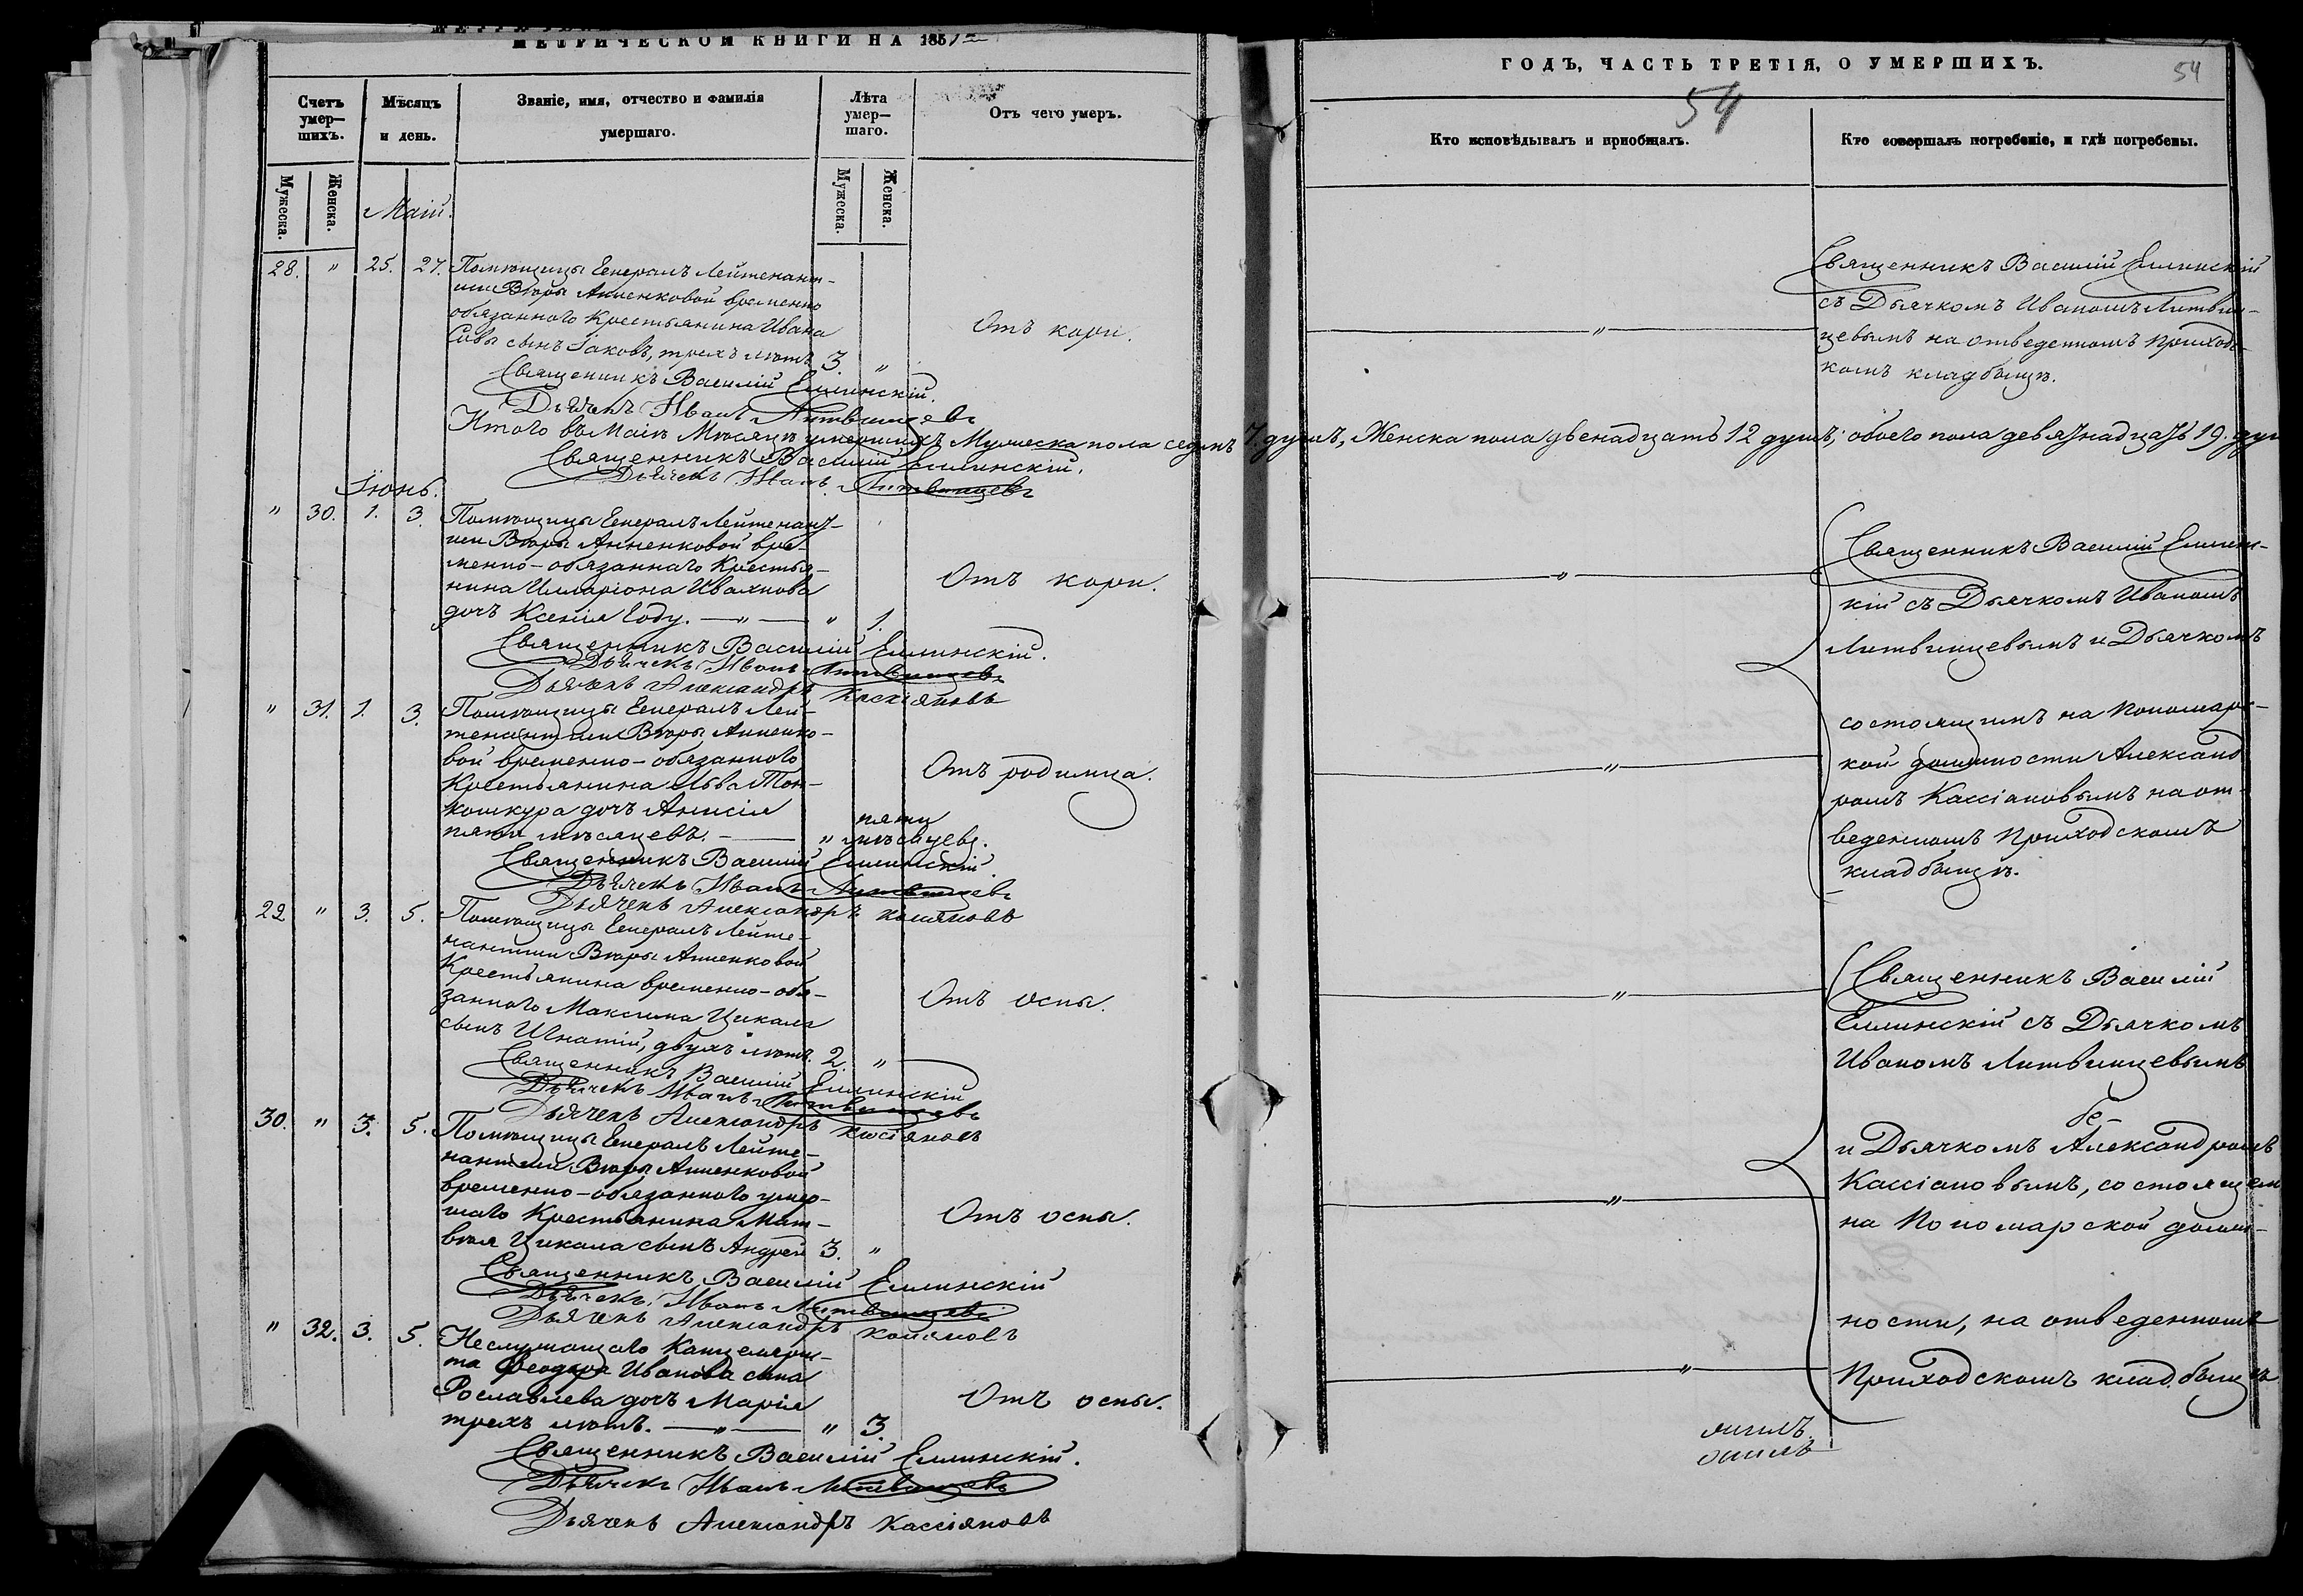 МЕТРИЧЕСКОЙ КНИГИ НА 185
Счетъ умер-шихъ.
Мѣсяцъ и день.
Званіе, имя, отчество и фамилія умершаго.
Лѣта умер-шаго.
Отъ чего умеръ.
Мужеска.
Женска.
Мужеска.
Женска.
Маій.
28. " 25. 27. Помѣщицы Генералъ Лейтенант-
ши Вѣры Анненковой временно
обязанного Крестьянина Ивана
Совы сынъ Іаковъ, трехъ лѣтъ 3. "
Отъ кори.
Священникъ Василій Еллинскій.
Дьячекъ Иванъ Литвинцевъ
Итого въ Маіѣ Мѣсяцѣ умершихъ Мужеска пола седмъ 7. душъ, Женска пола двенадцать 12 душъ; обоего пола девятнадцать 19. душ
Священникъ Василій Еллинскій.
Дьячекъ Иванъ Литвинцевъ
Іюнь.
" 30. 1. 3. Помѣщицы Генералъ Лейтенант-
ши Вѣры Анненковой вре-
менно-обязаннаго Крестья-
нина Илларіона
дочь Ксенія Году. —"— " 1.
Отъ кори.
Священникъ Василій Еллинскій.
Дьячекъ Иванъ Литвинцевъ
Дьячекъ Александръ Кассіяновъ
" 31. 1. 3. Помѣщицы Генералъ Лей-
тенантши Вѣры Анненко-
вой временно-обязанного
Крестьянина Льва Тон-
кошкура дочь Анисія
пяти мѣсяцевъ. — " пяти мѣсяцевъ.
Отъ родимца.
Священникъ Василій Еллинскій
Дьячекъ Иванъ Литвинцевъ
Дьячекъ Александръ Касіяновъ
29. " 3. 5. Помѣщицы Генералъ Лейте-
нантши Вѣры Анненковой
Крестьянина временно-обя-
занного Максима Цикала
сынъ Игнатій, двухъ лѣтъ. 2. "
Отъ оспы.
Священникъ Василій Еллинскій
Дьячекъ Иванъ Литвинцевъ
Дьячекъ Александръ Касіяновъ
30. " 3. 5. Помѣщицы Генералъ Лейте-
нантши Вѣры Анненковой
временно-обязанного умер-
шаго Крестьянина Мат-
вѣя Цикала сынъ Андрей 3. "
Отъ оспы.
Священникъ Василій Еллинскій
Дьячекъ Иванъ Литвинцевъ
Дьячекъ Александръ Касіяновъ
" 32. 3. 5. Неслужащаго Канцеляри-
та Феодора Иванова сына
Рославлева дочь Марія
трехъ лѣтъ. —"— " 3.
Отъ оспы.
Священникъ Василій Еллинскій.
Дьячекъ Иванъ Литвинцевъ
Дьячекъ Александръ Кассіяновъ
ГОДЪ, ЧАСТЬ ТРЕТІЯ, О УМЕРШИХЪ.
54
54
Кто исповѣдывалъ и пріобщалъ.
Кто совершалъ погребеніе, и гдѣ погребены.
Священникъ Василій Еллинскій
съ Дьячкомъ Иваномъ Литвин-
цевымъ на отведенномъ приходс-
комъ кладбищѣ.
Священникъ Василій Еллинс-
кій съ Дьячкомъ Иваномъ
Литвинцевымъ и Дьячкомъ
состоящимъ на Пономарс-
кой должности Александ
ромъ Кассіановымъ на от-
веденномъ Приходскомъ
кладбищѣ.
Священникъ Василій
Еллинскій съ Дьячкомъ
Иваномъ Литвинцевымъ
и Дьячкомъ Александромъ
Кассіановымъ, состоящем
на Пономарской долж-
ности, на отведенномъ
Приходскомъ кладбищѣ